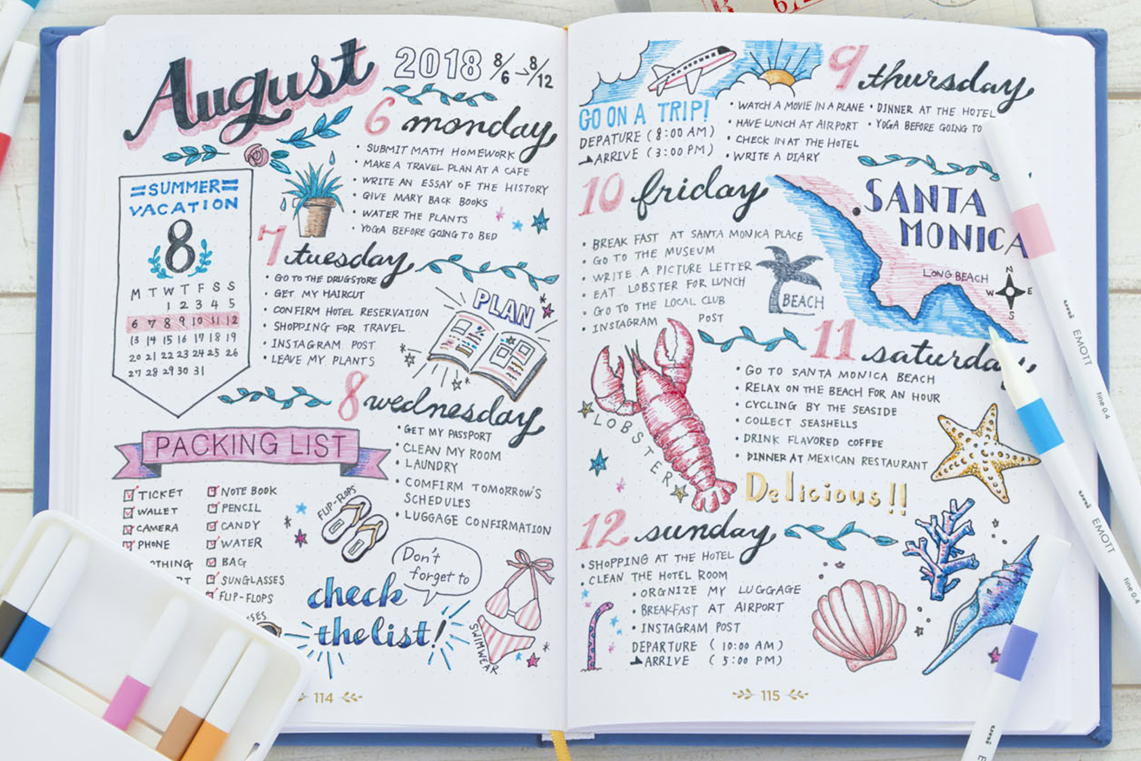 August
2018 8/6 → 8/12
SUMMER
VACATION
8
M T W T F S S
1 2 3 4 5
6 7 8 9 10 11 12
13 14 15 16 17 18 19
20 21 22 23 24 25 26
27 28 29 30 31
6 monday
• SUBMIT MATH HOMEWORK
• MAKE A TRAVEL PLAN AT A CAFE
• WRITE AN ESSAY OF THE HISTORY
• GIVE MARY BACK BOOKS
• WATER THE PLANTS
• YOGA BEFORE GOING TO BED
7 tuesday
• GO TO THE DRUGSTORE
• GET MY HAIRCUT
• CONFIRM HOTEL RESERVATION
• SHOPPING FOR TRAVEL
• INSTAGRAM POST
• LEAVE MY PLANTS
PLAN
8 wednesday
• GET MY PASSPORT
• CLEAN MY ROOM
• LAUNDRY
• COMFIRM TOMORROW'S
SCHEDULES
• LUGGAGE CONFIRMATION
PACKING LIST
TICKET
WALLET
CAMERA
PHONE
OTHING
NOTE BOOK
PENCIL
CANDY
WATER
BAG
SUNGLASSES
FLIP-FLOPS
FLIP-FLOPS
Don't
forget to
check
the list!
SWIMWEAR
114
GO ON A TRIP!
DEPATURE (8:00 AM)
ARRIVE (3:00 PM)
9 thursday
• WATCH A MOVIE IN A PLANE
• HAVE LUNCH AT AIRPORT
• CHECK IN AT THE HOTEL
• WRITE A DIARY
• DINNER AT THE HOTEL
• YOGA BEFORE GOING TO
10 friday
• BREAK FAST AT SANTA MONICA PLACE
• GO TO THE MUSEUM
• WRITE A PICTURE LETTER
• EAT LOBSTER FOR LUNCH
• GO TO THE LOCAL CLUB
• INSTAGRAM POST
BEACH
SANTA
MONICA
LONG BEACH
N
W
S
11 saturday
• GO TO SANTA MONICA BEACH
• RELAX ON THE BEACH FOR AN HOUR
• CYCLING BY THE SEASIDE
• COLLECT SEASHELLS
• DRINK FLAVORED COFFEE
• DINNER AT MEXICAN RESTAURANT
LOBSTER
Delicious!!
12 sunday
• SHOPPING AT THE HOTEL
• CLEAN THE HOTEL ROOM
• ORGNIZE MY LUGGAGE
• BREAKFAST AT AIRPORT
• INSTAGRAM POST
DEPARTURE (10:00 AM)
ARRIVE (5:00 PM)
115
uni EMOTT fine 0.4
uni EMOTT fine 0.4
uni